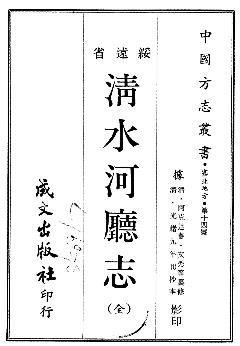 中國方志叢書・塞北地方・第十四號
據
清・阿克達春
清・光緒九年抄本
影印
綏遠省
清水河廳志
(全)
成文出版社印行